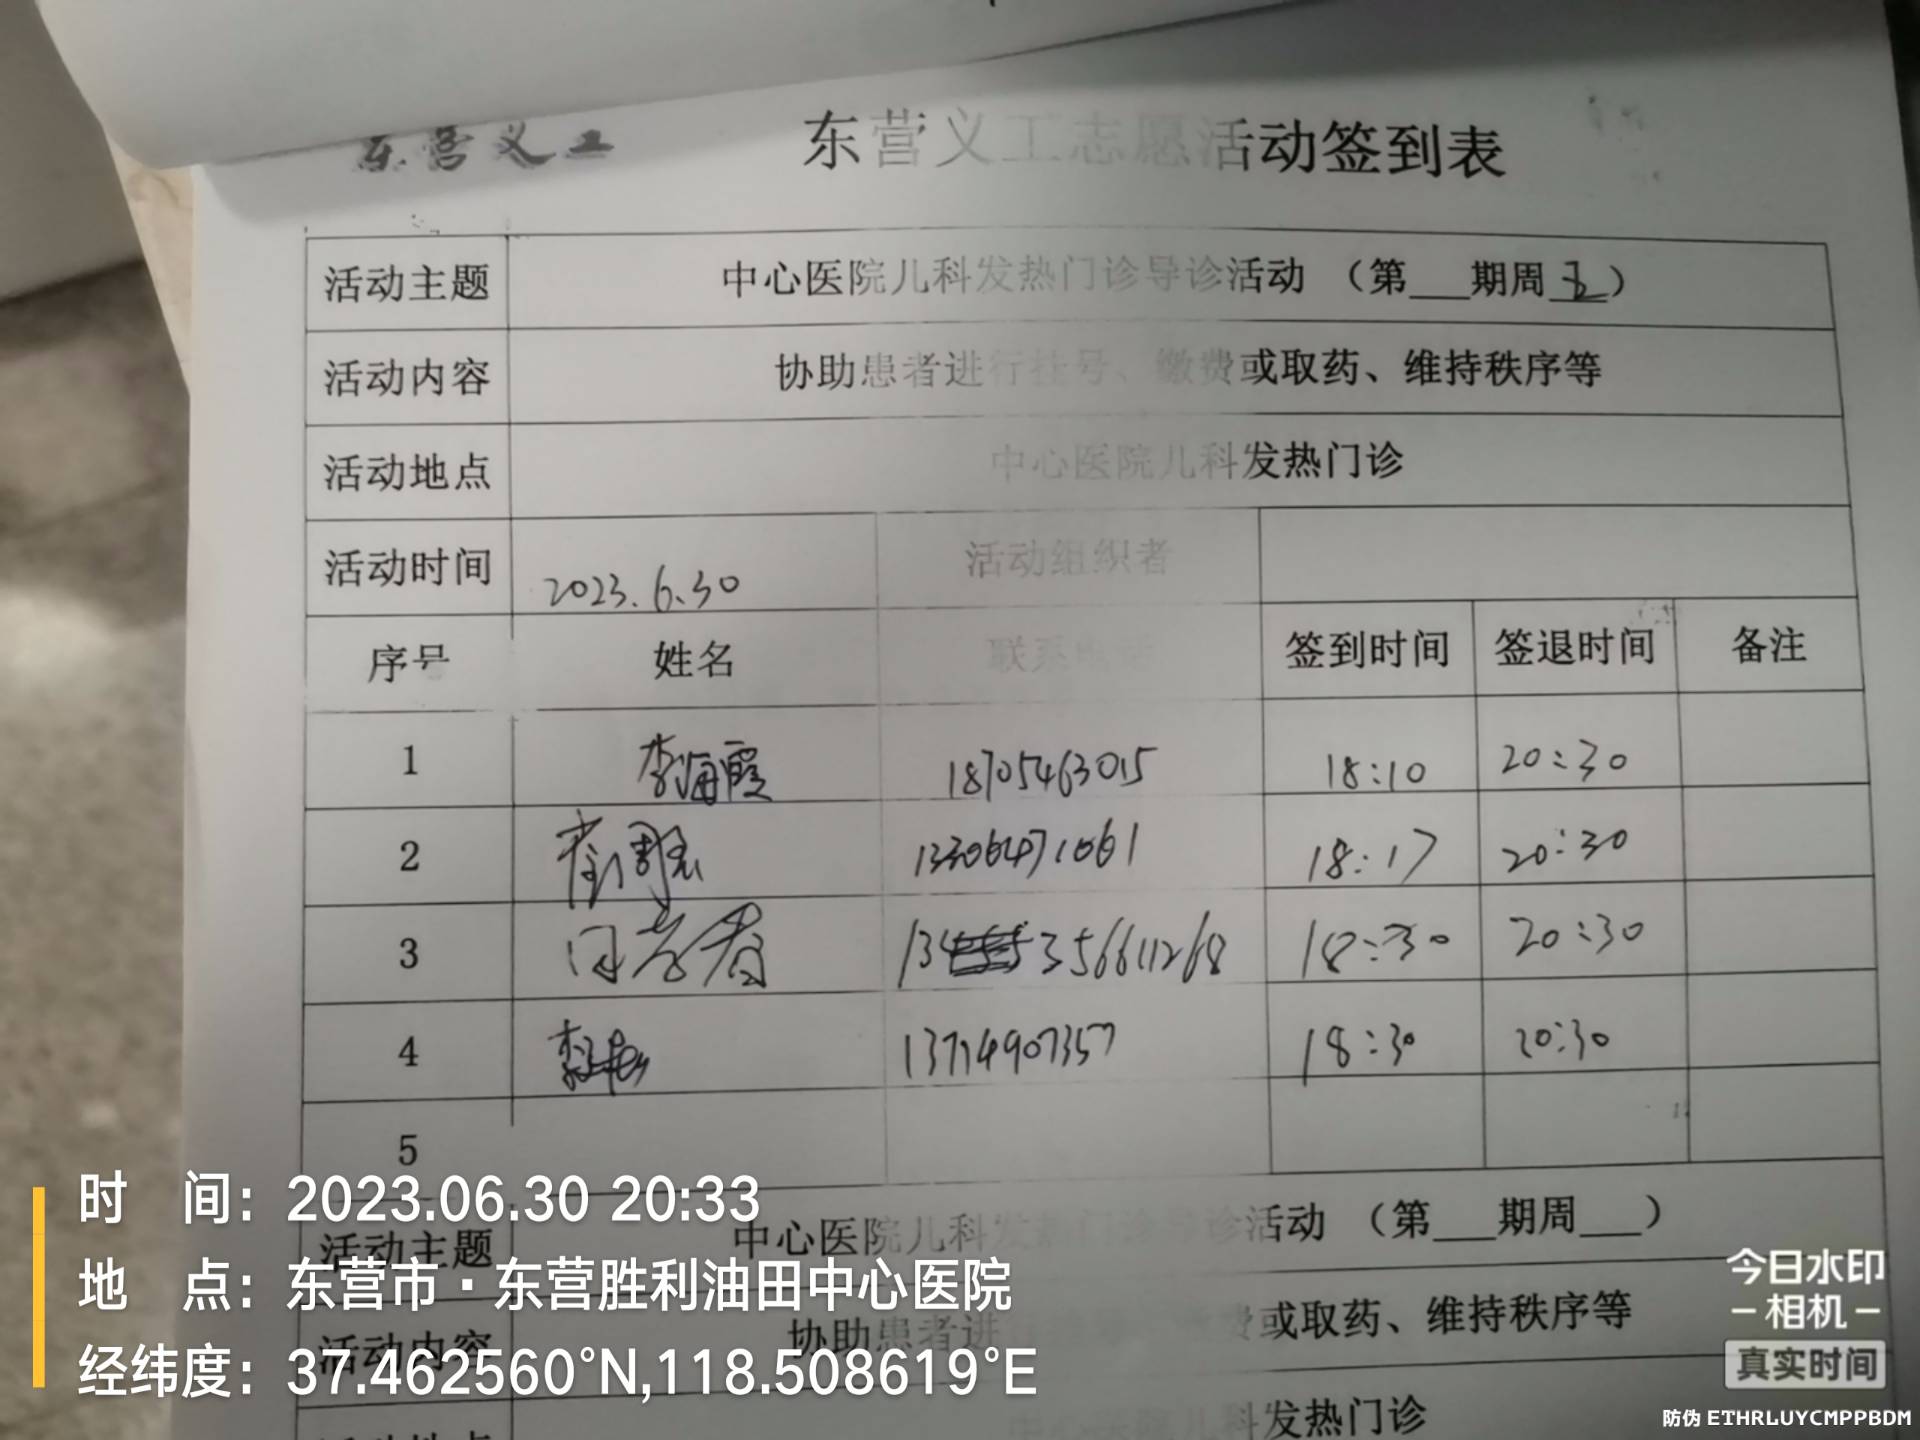 东营义工
东营义工志愿活动签到表
活动主题 中心医院儿科发热门诊导诊活动 （第___期周五）
活动内容 协助患者进行挂号、缴费或取药、维持秩序等
活动地点 中心医院儿科发热门诊
活动时间 2023.6.30 活动组织者
序号 姓名 联系电话 签到时间 签退时间 备注
1 李海霞 18705463015 18:10 20:30
2 13306471661 18:17 20:30
3 18:30 20:30
4 18:30 20:30
5
活动主题 中心医院儿科发热门诊导诊活动 （第___期周___）
活动内容 协助患者进 费或取药、维持秩序等
中心医院儿科发热门诊
时 间：2023.06.30 20:33
地 点：东营市·东营胜利油田中心医院
经纬度：37.462560°N,118.508619°E
今日水印
相机
真实时间
防伪 ETHRLUYCMPPBDM